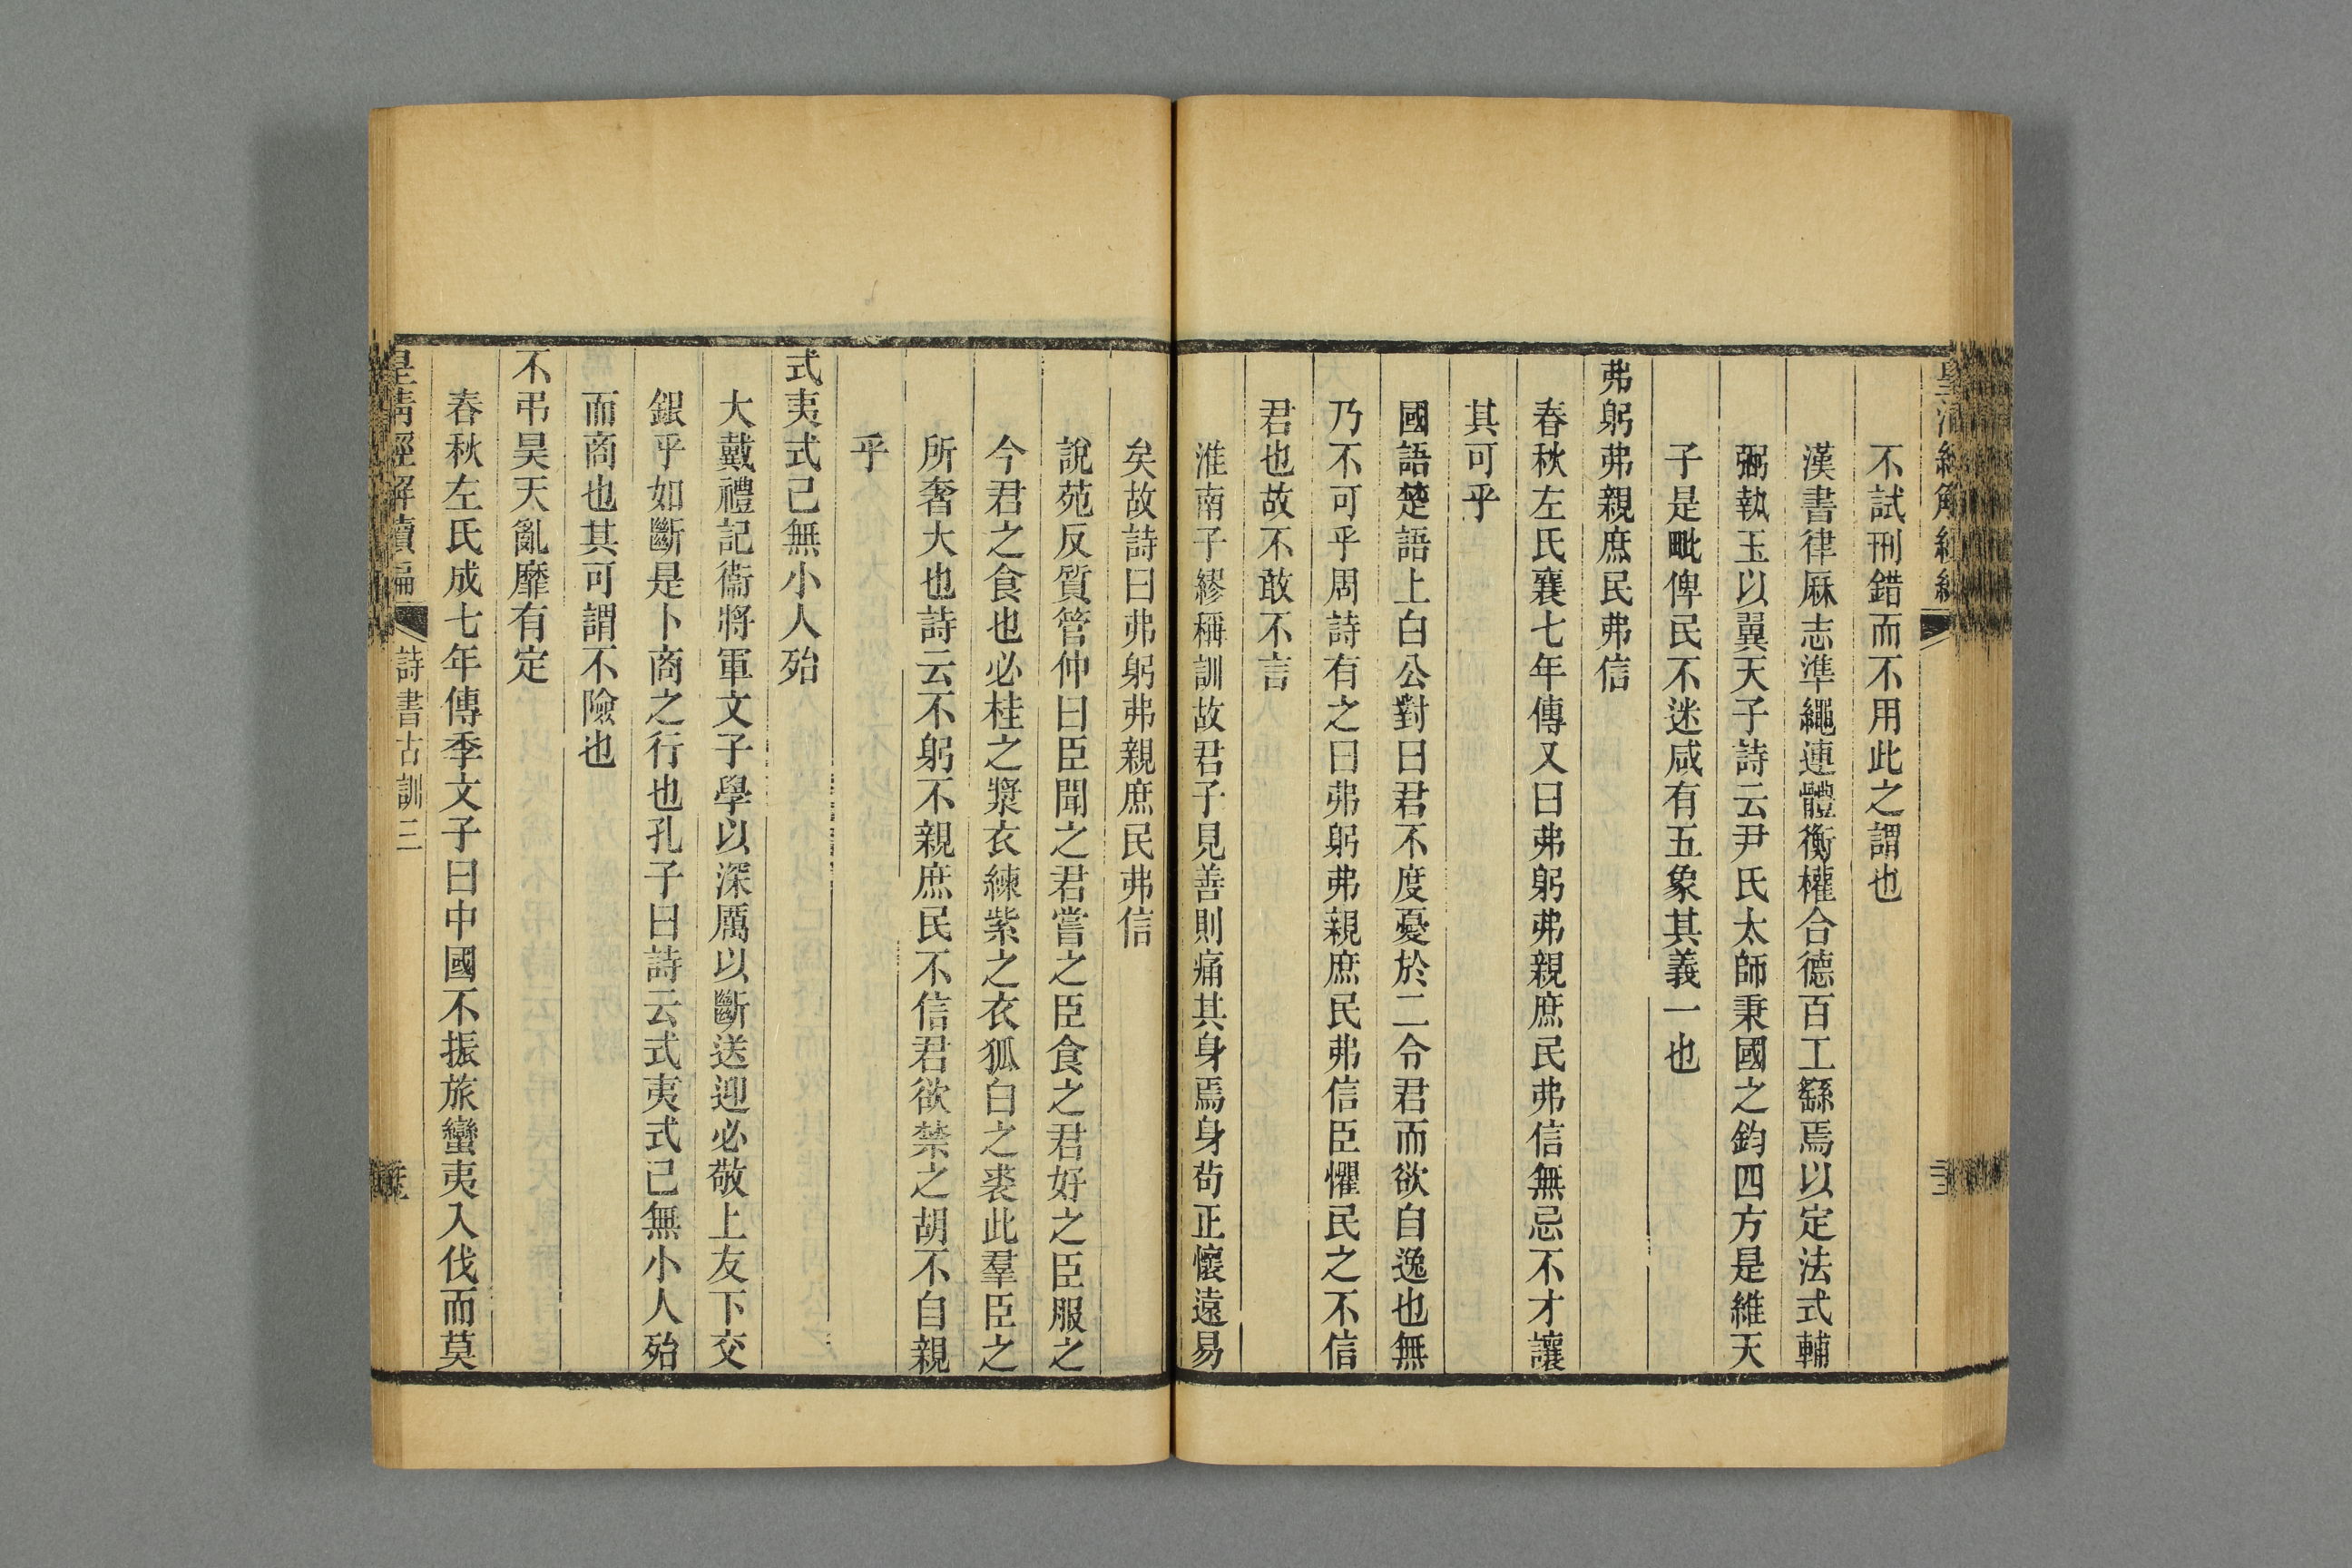 不試刑錯而不用此之謂也
漢書律厤志準繩連體衡權合德百工繇焉以定法式輔
弼執玉以翼天子詩云尹氏太師秉國之鈞四方是維天
子是毗俾民不迷咸有五象其義一也
弗躬弗親庶民弗信
春秋左氏襄七年傳又曰弗躬弗親庶民弗信無忌不才讓
其可乎
國語楚語上白公對曰君不度憂於二令君而欲自逸也無
乃不可乎周詩有之曰弗躬弗親庶民弗信臣懼民之不信
君也故不敢不言
淮南子繆稱訓故君子見善則痛其身焉身苟正懷遠易
矣故詩曰弗躬弗親庶民弗信
說苑反質管仲曰臣聞之君嘗之臣食之君好之臣服之
今君之食也必桂之漿衣練紫之衣狐白之裘此羣臣之
所奢大也詩云不躬不親庶民不信君欲禁之胡不自親
乎
式夷式已無小人殆
大戴禮記衞將軍文子學以深厲以斷送迎必敬上友下交
銀乎如斷是卜商之行也孔子曰詩云式夷式已無小人殆
而商也其可謂不險也
不弔昊天亂靡有定
春秋左氏成七年傳季文子曰中國不振旅蠻夷入伐而莫
皇清經解續編 詩書古訓三